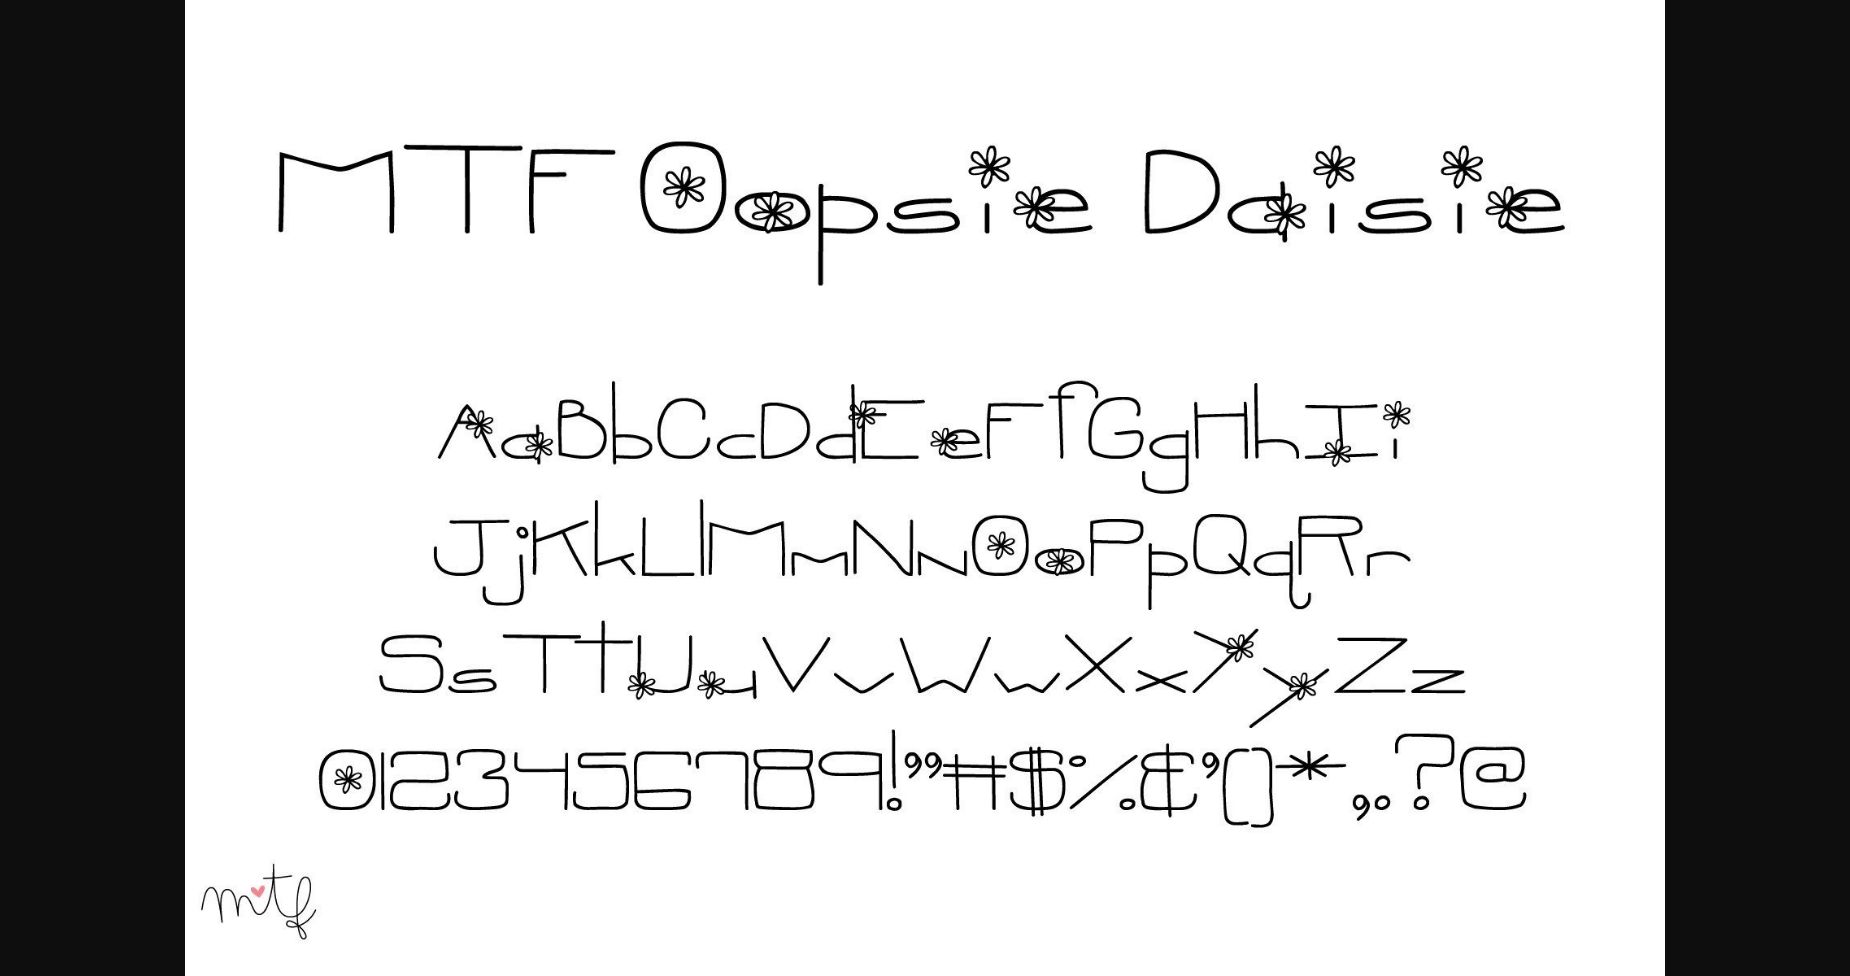 MTF Oopsie Daisie
AaBbCcDdEeFfGgHhIi
JjKkLlMmNnOoPpQqRr
SsTtUuVvWwXxYyZz
0123456789!"#$%&'()*,.?@
mtf